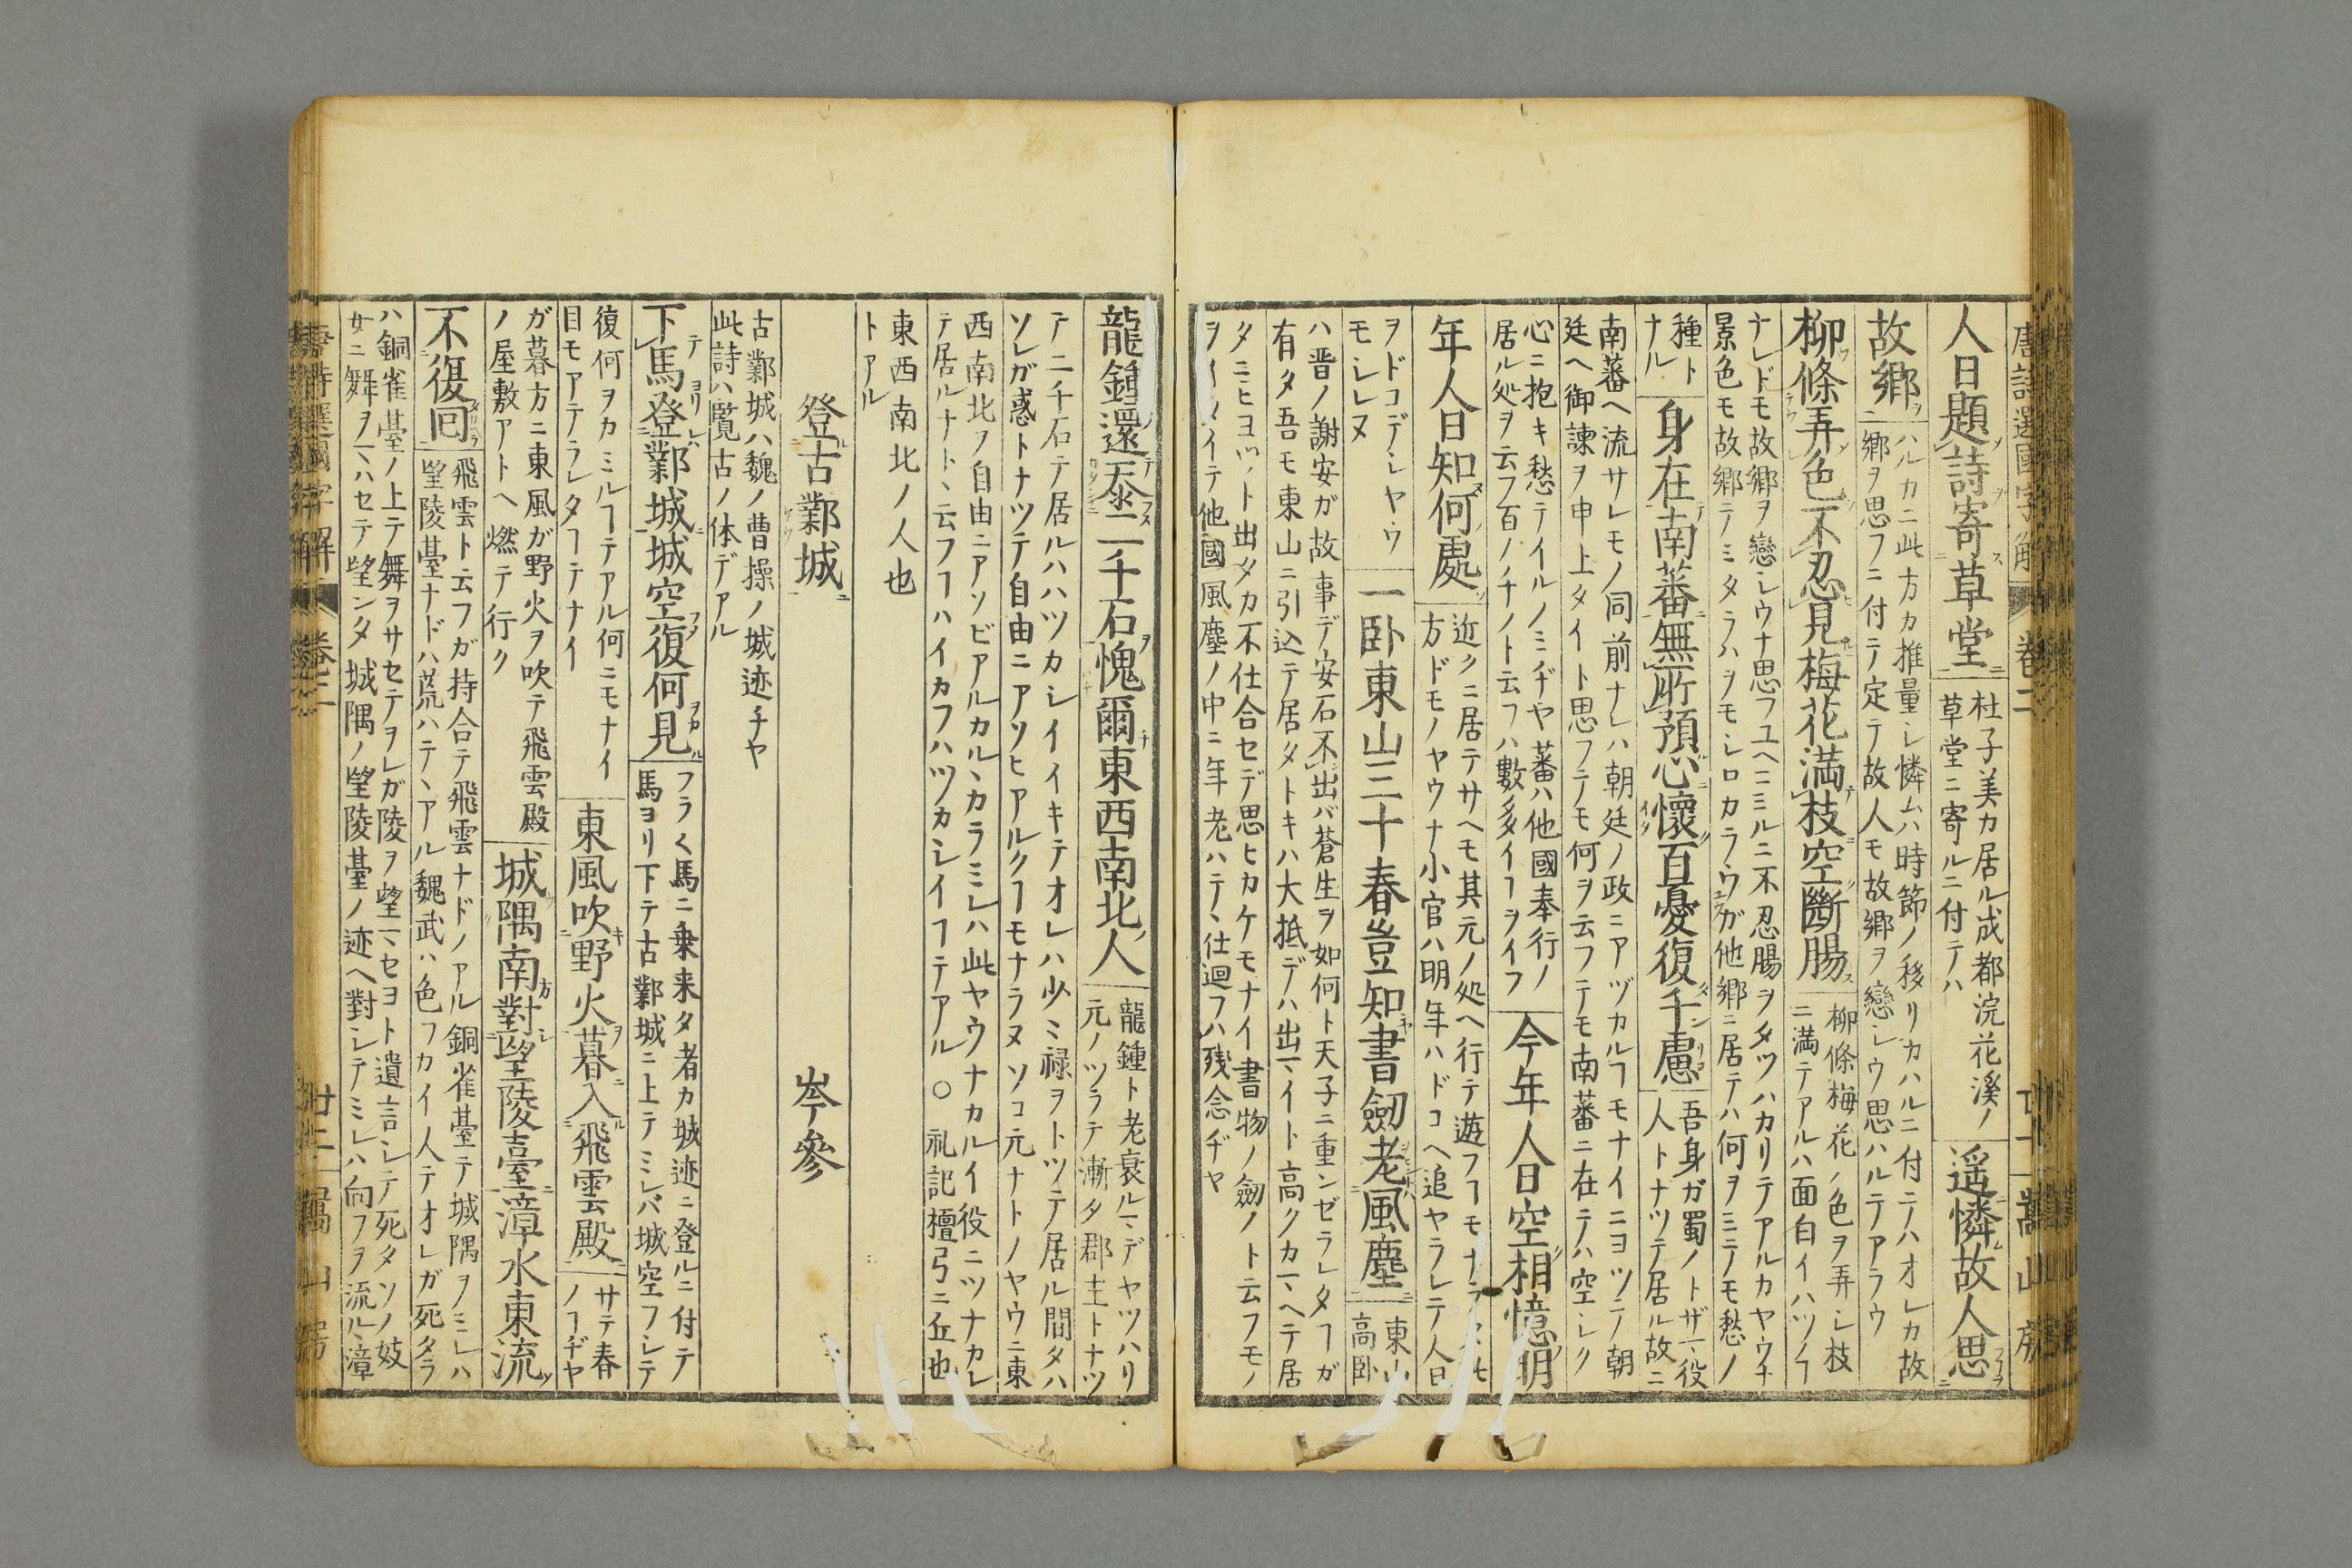 唐詩選國字解 巻二 嵩山房
人日題詩寄草堂
杜子美カ居ル成都浣花溪ノ
草堂ニ寄ルニ付テハ
遥憐故人思
故鄉
ハルカニ此方カ推量シ憐ムハ時節ノ移リカハルニ付テハオレカ故
鄉ヲ思フニ付テ定テ故人モ故鄉ヲ戀シウ思ハルテアラウ
柳條弄色不忍見梅花滿枝空斷腸
柳條梅花ノ色ヲ弄シ枝
ニ満テアルハ面白イハヅノヿ
ナレドモ故鄉ヲ戀シウナ思フユヘニミルニ不忍腸ヲタツハカリテアルカヤウナ
景色モ故鄉テミタラハヲモシロカラウガ他鄉ニ居テハ何ヲミテモ愁ノ
種ト
ナル
身在南蕃無所預心懷百憂復千慮
吾身ガ蜀ノトザマ役
人トナツテ居ル故ニ
南蕃ヘ流サレモノ同前ナレハ朝廷ノ政ニアヅカルヿモナイニヨツテ朝
廷ヘ御諫ヲ申上タイト思フテモ何ヲ云フテモ南蕃ニ在テハ空シク
心ニ抱キ愁テイルノミヂヤ蕃ハ他國奉行ノ
居ル処ヲ云フ百ノ千ノト云フハ數多イヿヲイフ
今年人日空相憶明
年人日知何處
近クニ居テサヘモ其元ノ処ヘ行テ遊フヿモナラヌ
方ドモノヤウナ小官ハ明年ハドコヘ追ヤラレテ人日
ヲドコデシヤウ
モシレヌ
一卧東山三十春豈知書劒老風塵
東山
高卧
ハ晋ノ謝安ガ故事デ安石不出バ蒼生ヲ如何ト天子ニ重ンゼラレタヿガ
有タ吾モ東山ニ引込テ居タトキハ大抵デハ出マイト高クカマヘテ居
タニヒヨツト出タカ不仕合セデ思ヒカケモナイ書物ノ劒ノト云フモノ
ヲイタイテ他國風塵ノ中ニ年老ハテヽ仕廻フハ残念ヂヤ
龍鍾還忝二千石愧爾東西南北人
龍鍾ト老衰ルマデヤツハリ
元ノツラテ漸タ郡主トナツ
テ二千石テ居ルハハツカシイイキテオレハ少ミ禄ヲトツテ居ル間タハ
ソレガ惑トナツテ自由ニアソヒアルクヿモナラヌソコ元ナトノヤウニ東
西南北ヲ自由ニアソビアルカルヽカラミレハ此ヤウナカルイ役ニツナカレ
テ居ルナトヽ云フヿハイカフハツカシイヿテアル○礼記檀弓ニ丘也
東西南北ノ人也
トアル
登古鄴城 岑參
古鄴城ハ魏ノ曹操ノ城迹チヤ
此詩ハ覧古ノ体デアル
下馬登鄴城城空復何見
フラく馬ニ乗来タ者カ城迹ニ登ルニ付テ
馬ヨリ下テ古鄴城ニ上テミレバ城空フシテ
復何ヲカミルヿテアル何ニモナイ
目モアテラレタヿテナイ
東風吹野火暮入飛雲殿
サテ春
ノヿヂヤ
ガ暮方ニ東風が野火ヲ吹テ飛雲殿
ノ屋敷アトヘ燃テ行ク
城隅南對望陵臺漳水東流
不復回
飛雲ト云フガ持合テ飛雲ナドノアル銅雀臺テ城隅ヲノミレハ
望陵臺ナドハ荒ハテヽアル魏武ハ色フカイ人テオレガ死タラ
ハ銅雀臺ノ上テ舞ヲサセテヲレガ陵ヲ望マセヨト遺言シテ死タソノ妓
女ニ舞ヲマハセテ望ンタ城隅ノ望陵臺ノ迹ヘ對シテミレハ向フヲ流ルヽ漳
唐詩選國字解 巻二 廿二 嵩山房